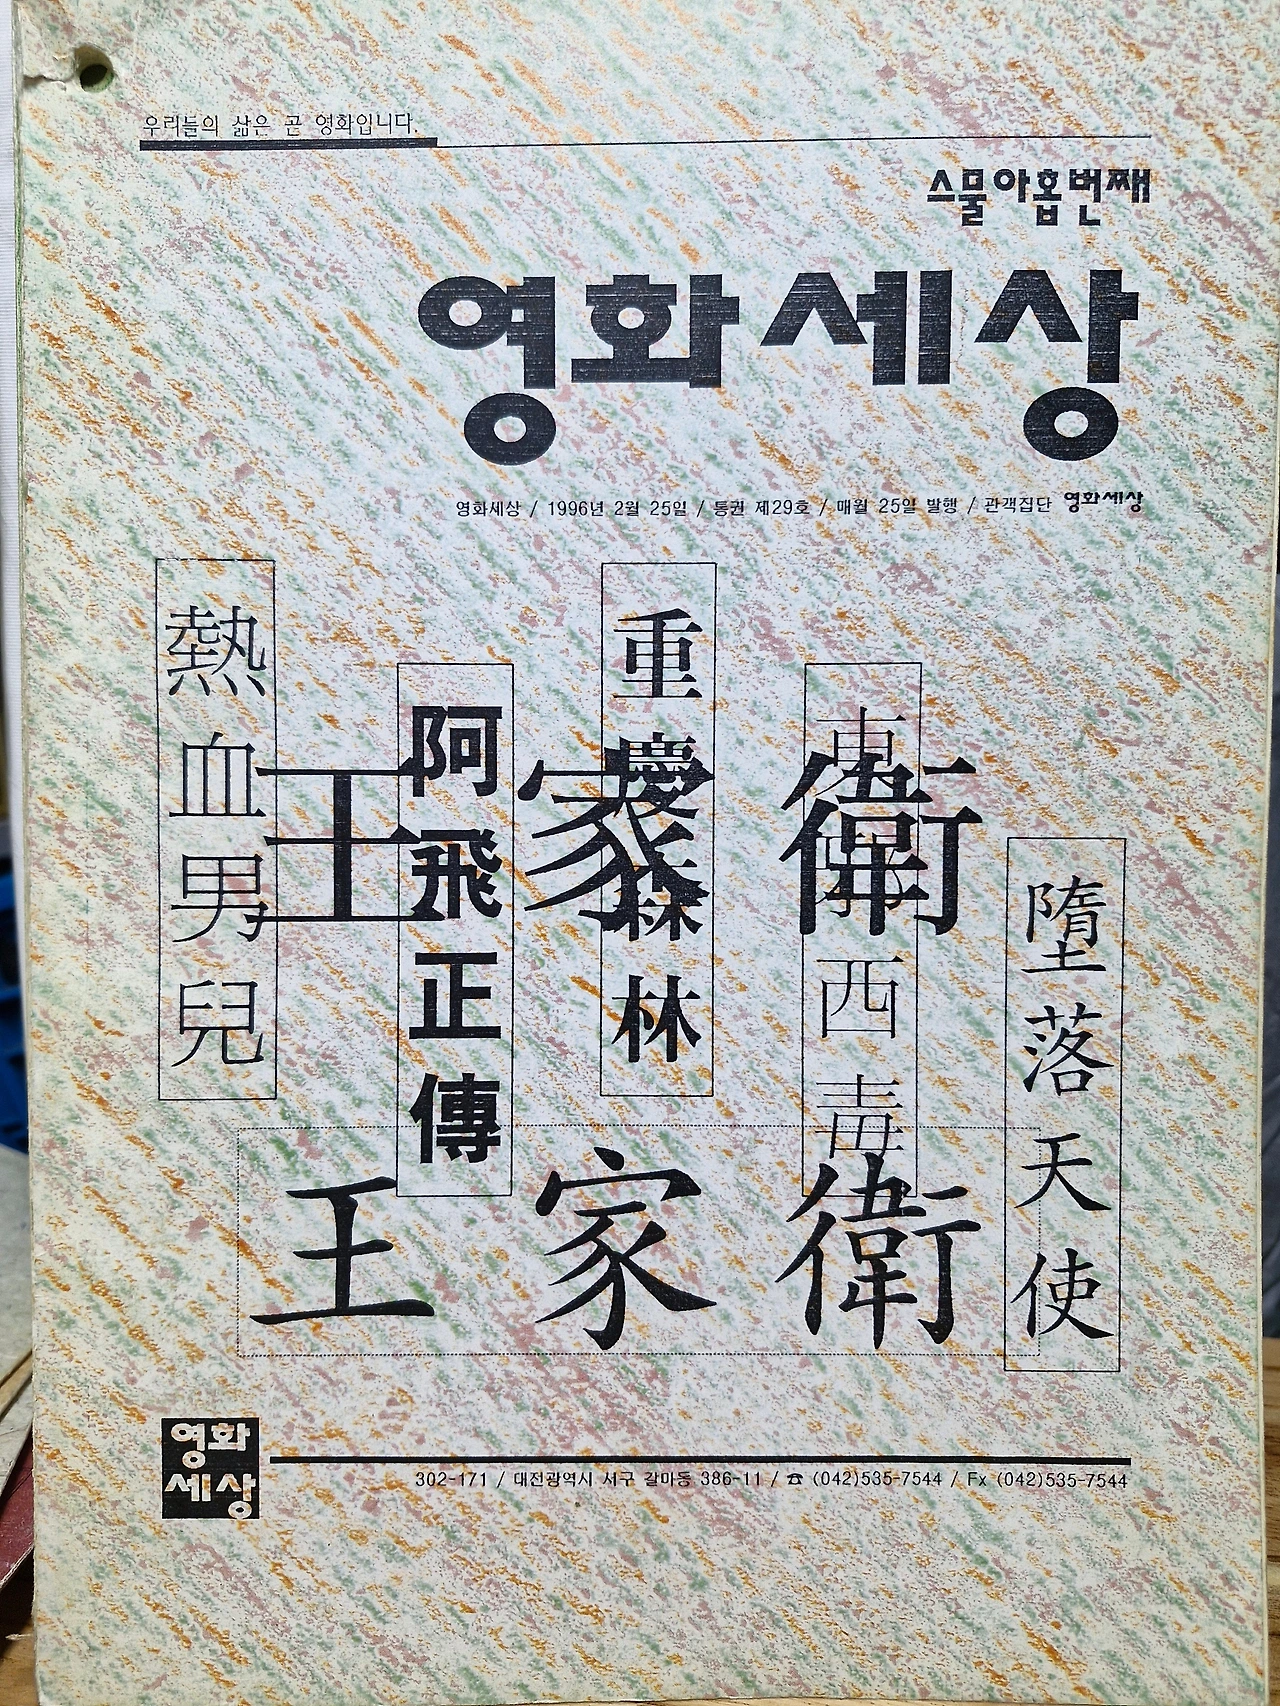 우리들의 삶은 곧 영화입니다.
스물아홉번째
영화세상
영화세상 / 1996년 2월 25일 / 통권 제29호 / 매월 25일 발행 / 관객집단 영화세상
熱血男兒
阿飛正傳
重慶森林
東邪西毒
墮落天使
王家衛
王家衛
영화
세상
302-171 / 대전광역시 서구 갈마동 386-11 / ☎ (042)535-7544 / Fx (042)535-7544